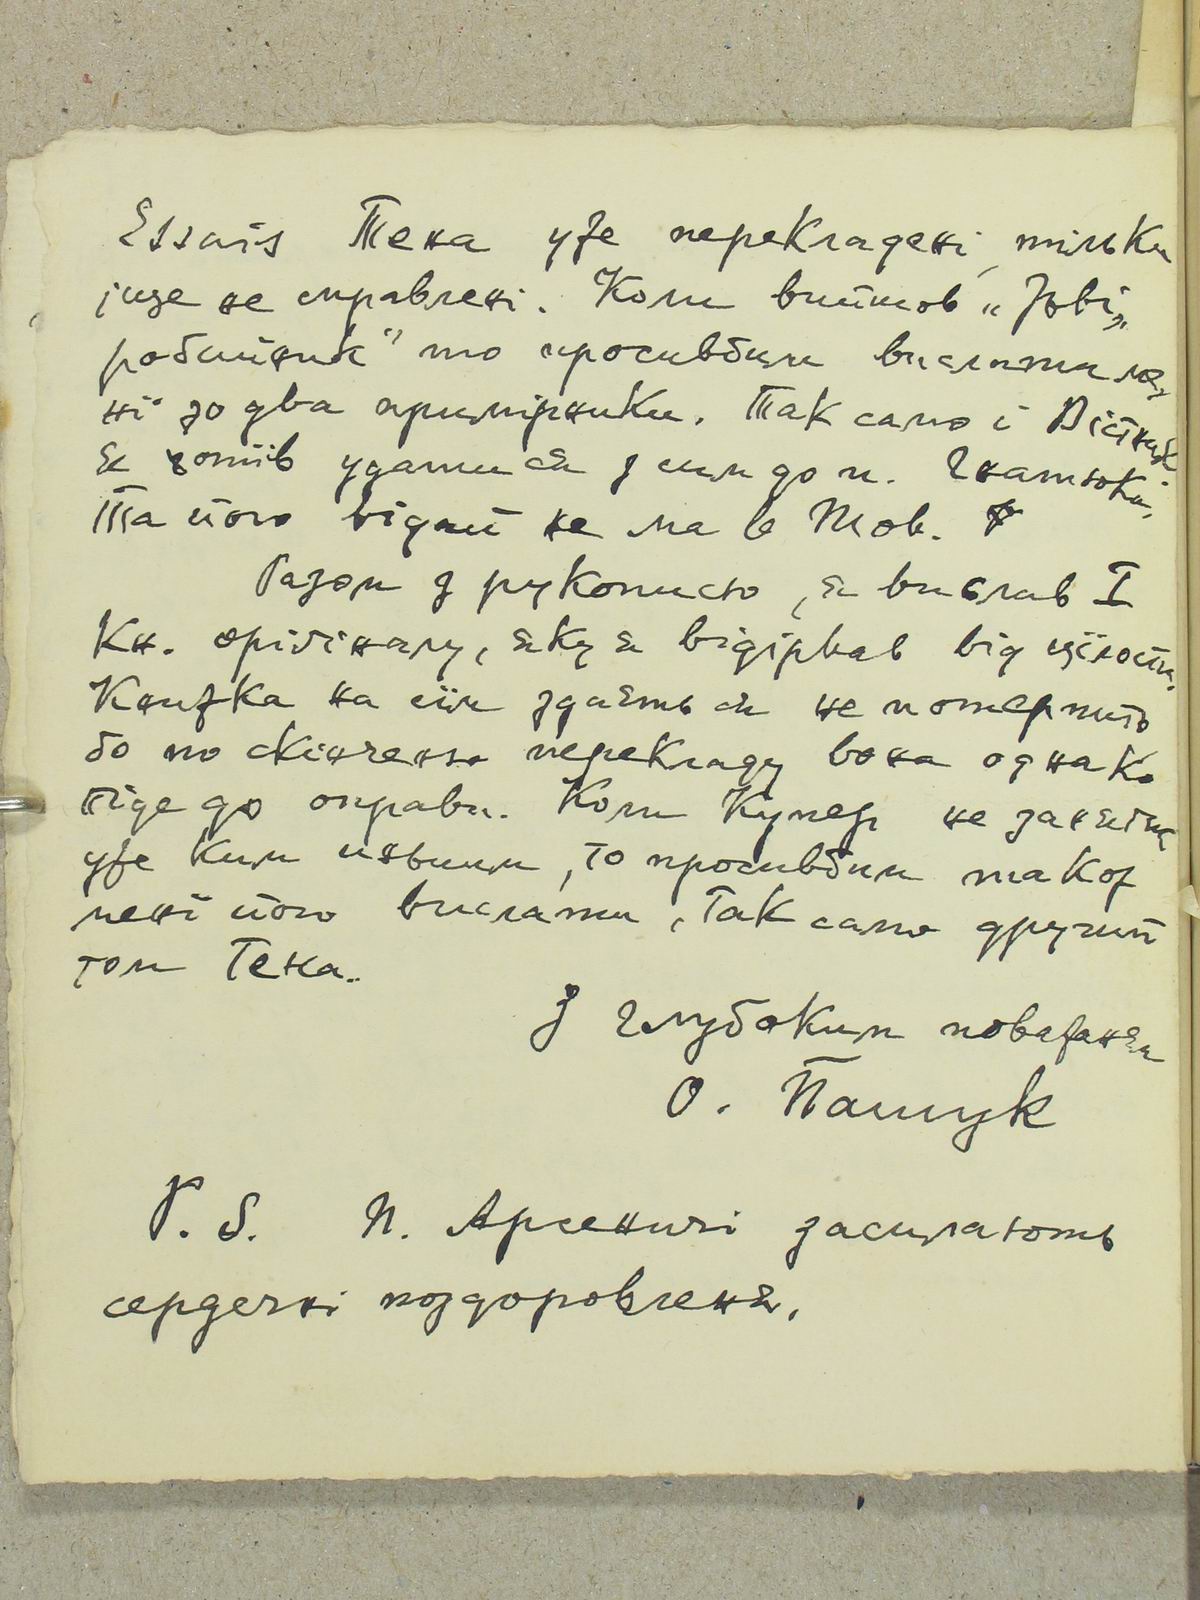 Essais Тена уже перекладені, тільки
іще не справлені. Коли вийшов „Зові„
робітник" то просивбим вислати ме„
ні зо два примірники. Так само і Вістник.
Я хотів удатися з сим до п. Гнатюка,
та його відай не ма в Тов.
Разом з рукописю, я вислав І
кн. оріґіналу, яку я відірвав від цілости.
Книжка на сім здаєть ся не потерпить
бо по скінченю перекладу вона однако
піде до оправи. Коли Купер не занятий
уже ким иньшим, то просивбим також
мені його вислати, так само другий
том Тена.
З глубоким поважаням
О. Пашук
P. S. П. Арсеничі засилають
сердечні поздоровленя.